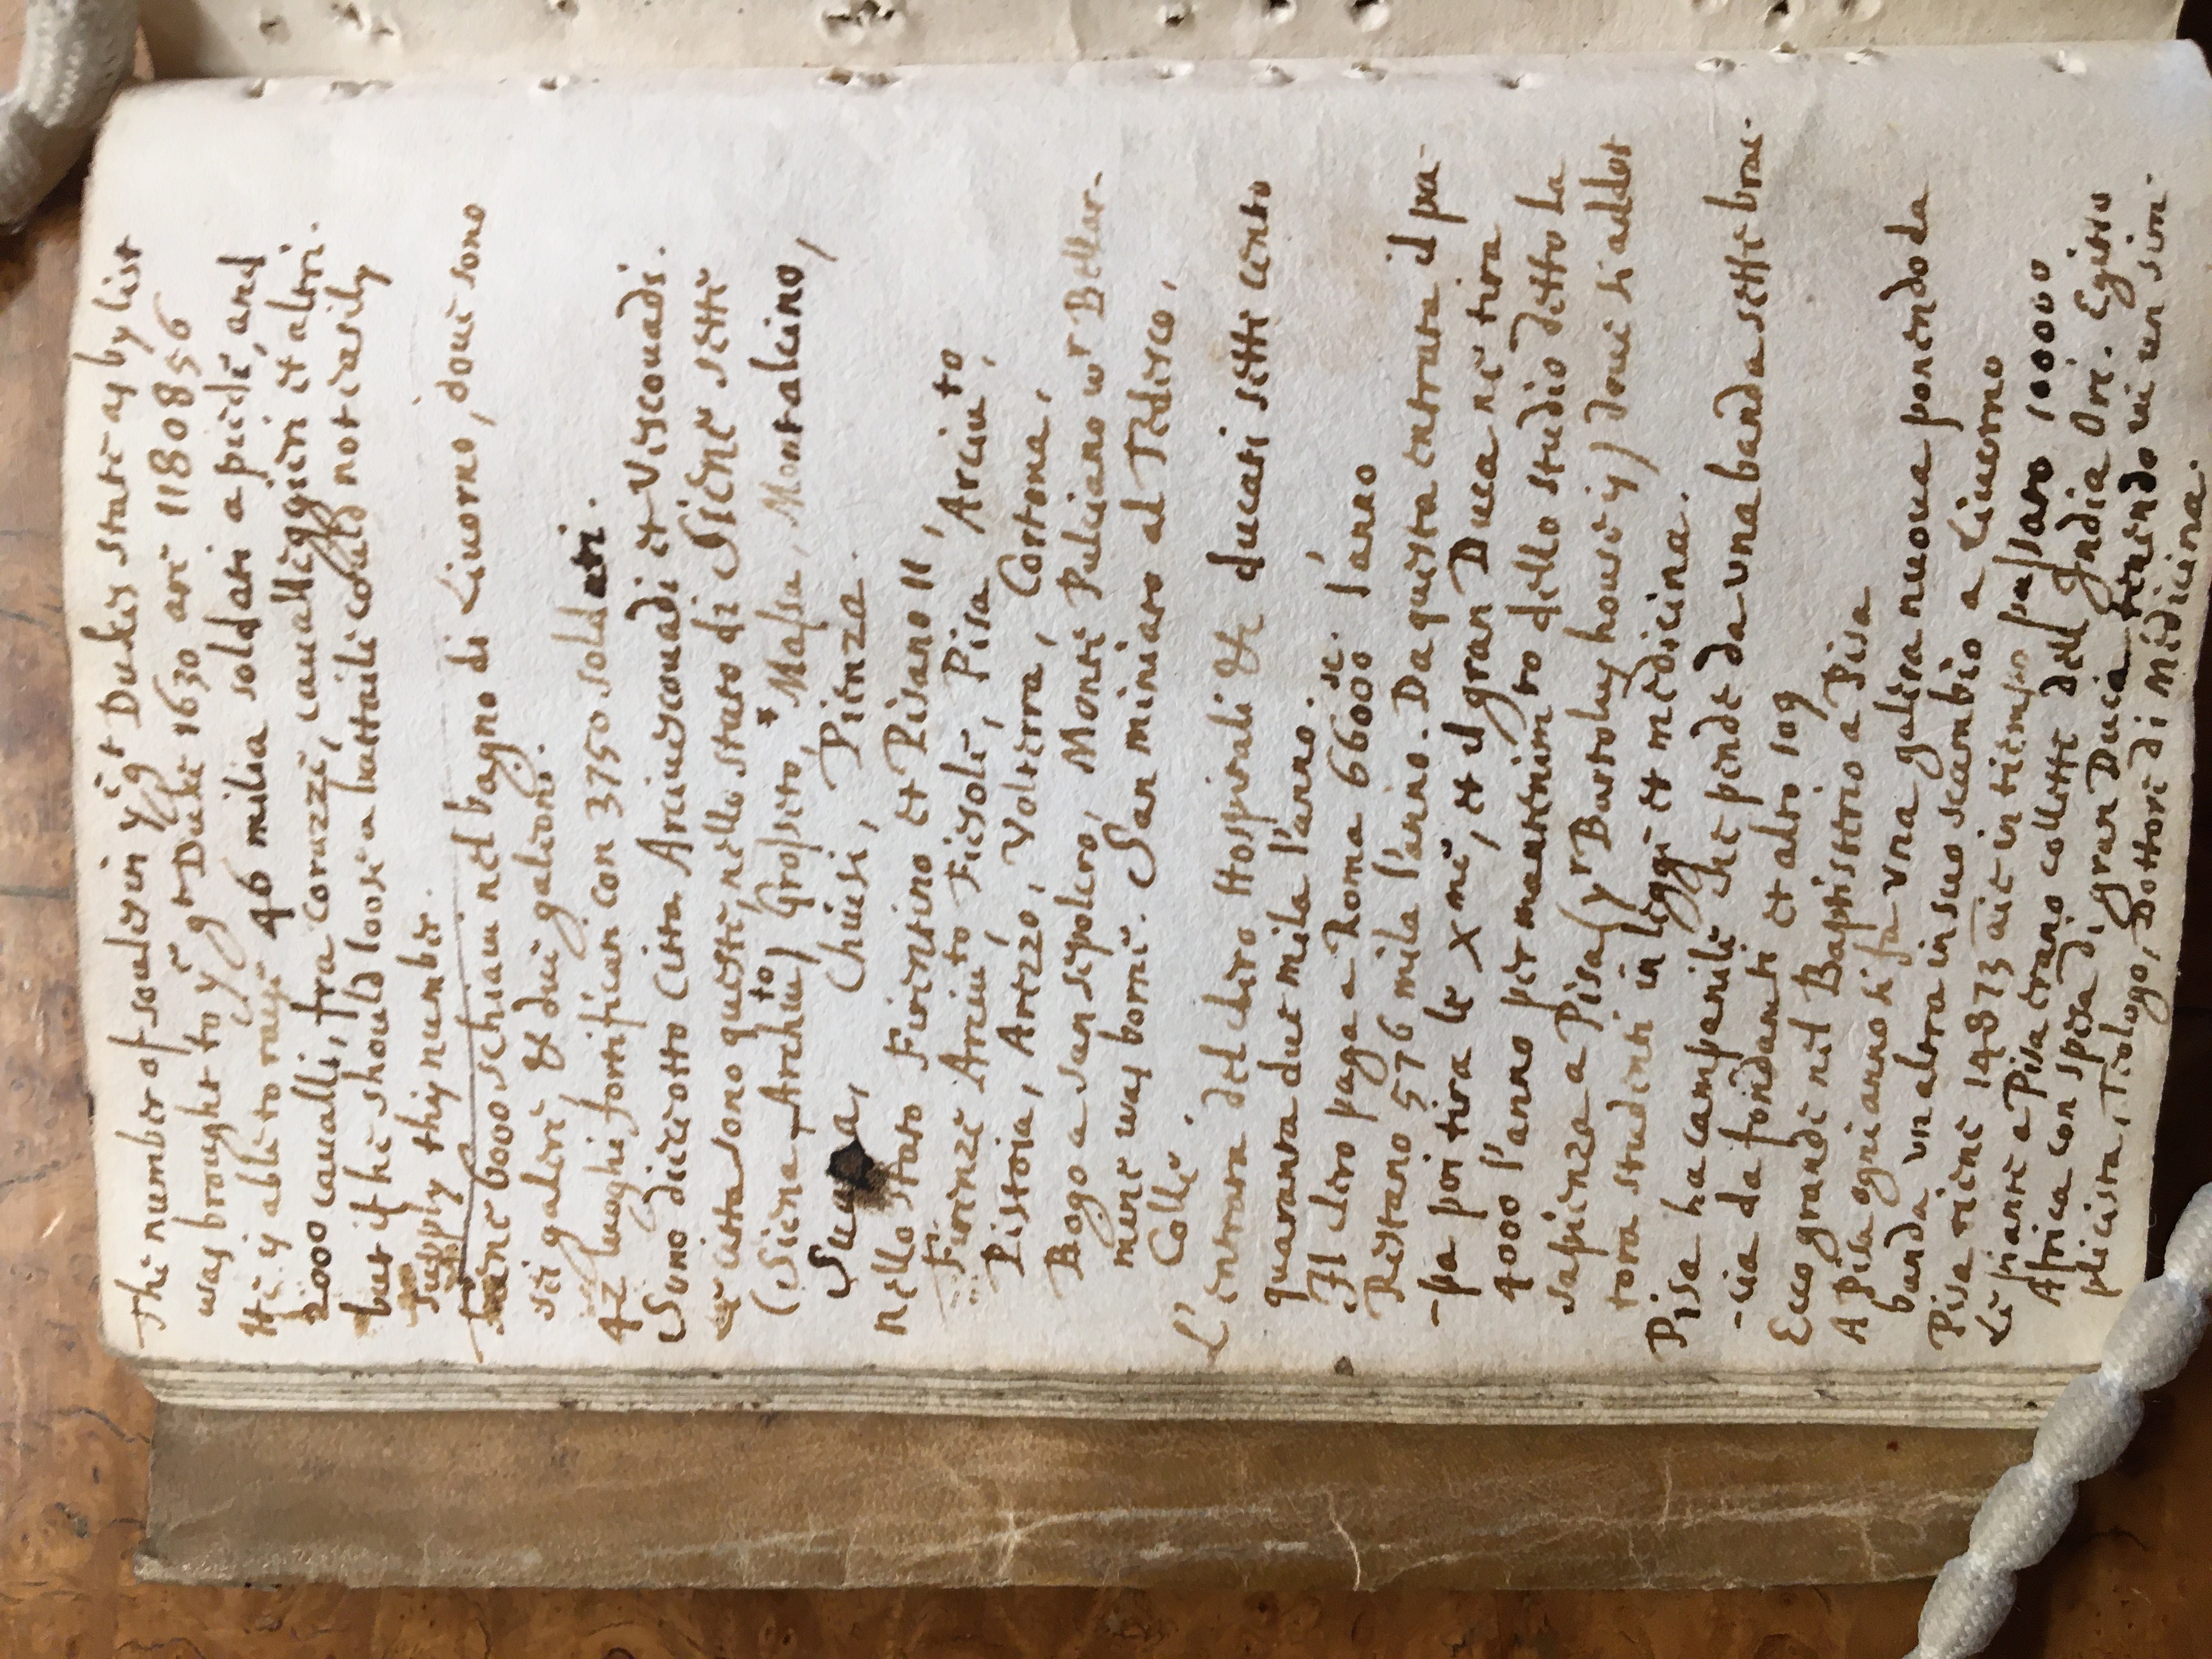 The number of soules in yͤ gͭ Dukes state as by list
was brought to yͤ gͭ Duke 1630 are 1180856
He is able to rayse 46 milia soldati a piede, and
2000 cavalli, fra corazze, cavalleggieri et altri.
but if he should loose a battaile could not easily
supply this number.
Tiene 6000 schiavi nel bagno di Livorno, dove sono
sei galere & due galeoni.
42 luoghi fortificati con 3750 soldati.
Sono dieciotto Citta Arcivescovadi et Vescovadi.
Le citta sono queste, nello stato di Siene sette
(Siena Archivͭͦ) Grosseto, * Massa, Montalcino,
Suana, Chiusi, Pienza.
Nello stato Fiorentino et Pisano 11,
Firenze Arcivͭͦ Fiesole, Pisa Arcivͭͦ,
Pistoia, Arezzo, Volterra, Cortona,
Bogo a san sepolcro, Monte Pulciano wͬ Bellar-
mene was borne. San miniato al Tedesco,
Colle.
L'entrata del clero Hospitali &c ducati sette cento
quaranta due mila l'anno.
Il clero paga a Roma 66000 sc. l'anno
Restano 576 mila l'anno. Da questa entrata il pa-
-pa poi tira le X me, et il gran Duca ne tira
4000 l'anno per mantenimͭͦ dello studio detto la
sapienza a Pisa (yͬ Bartolus house is) dove si addot
tora studenti in legge et medicina.
Pisa ha campanile che pende da una banda sette brac-
-cia da fondamti et alto 109
Ecco grande nel Baptisterio a Pisa
A Pisa ogni anno si fa una galera nuova ponendo da
banda un altra in suo scambio a Livorno
Pisa tiene 14873 in tiempo passato 100000
Le piante a Pisa erano collette dell India Ori. Egitto
Africa con spesa di gran Duca tenendo ivi un sim-
plicista, Teologo, Dottori di Medicina.